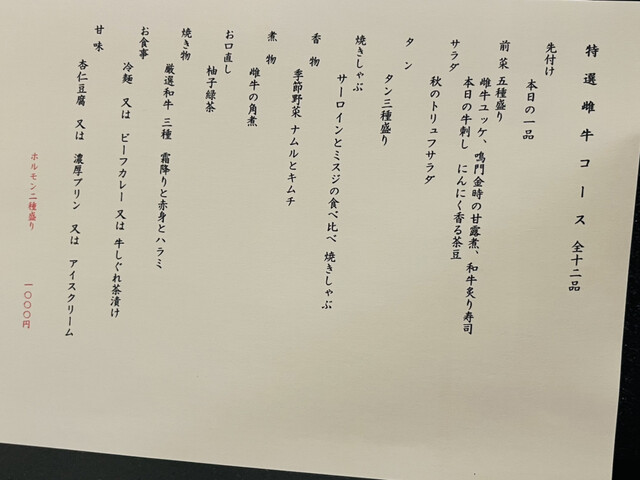 特選雌牛コース 全十二品
先付け
本日の一品
前菜 五種盛り
雌牛ユッケ、鳴門金時の甘露煮、和牛炙り寿司
本日の牛刺し にんにく香る茶豆
サラダ
秋のトリュフサラダ
タン
タン三種盛り
焼きしゃぶ
サーロインとミスジの食べ比べ 焼きしゃぶ
香物
季節野菜 ナムルとキムチ
煮物
雌牛の角煮
お口直し
柚子緑茶
焼き物
厳選和牛 三種 霜降りと赤身とハラミ
お食事
冷麺 又は ビーフカレー 又は 牛しぐれ茶漬け
甘味
杏仁豆腐 又は 濃厚プリン 又は アイスクリーム
ホルモン二種盛り 一〇〇〇円